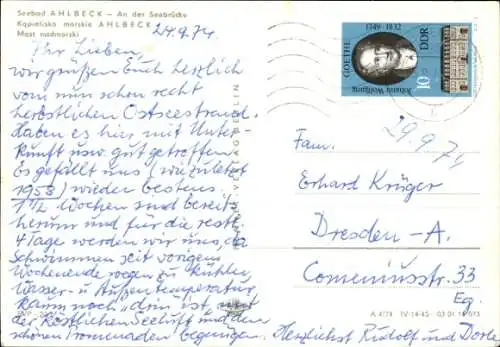 Seebad AHLBECK – An der Seebrücke
Kąpielisko morskie AHLBECK
Most nadmorski
24.9.74
Ihr Lieben,
wir grüßen Euch herzlich
vom nun schon recht
herbstlichen Ostseestrand.
Haben es hier mit Unter
kunft usw. gut getroffen.
Es gefällt uns (wie zuletzt
1958) wieder bestens.
1 1/2 Wochen sind bereits
herum und für die restl.
4 Tage werden wir uns, da
Schwimmen seit vorigem
Wochenende wegen zu kühler
Wasser- u. Außentemperatur
kaum noch "drin ist, mit
der köstlichen Seeluft und den
schönen Promenaden begnügen.
Herzlichst Rudolf und
GOETHE
1749-1832
Johann Wolfgang
DDR
10
29.9.74
Fam.
Erhard Krüger
Dresden-A.
Comeniusstr. 33
Eg.
A 4/74 IV-14-45